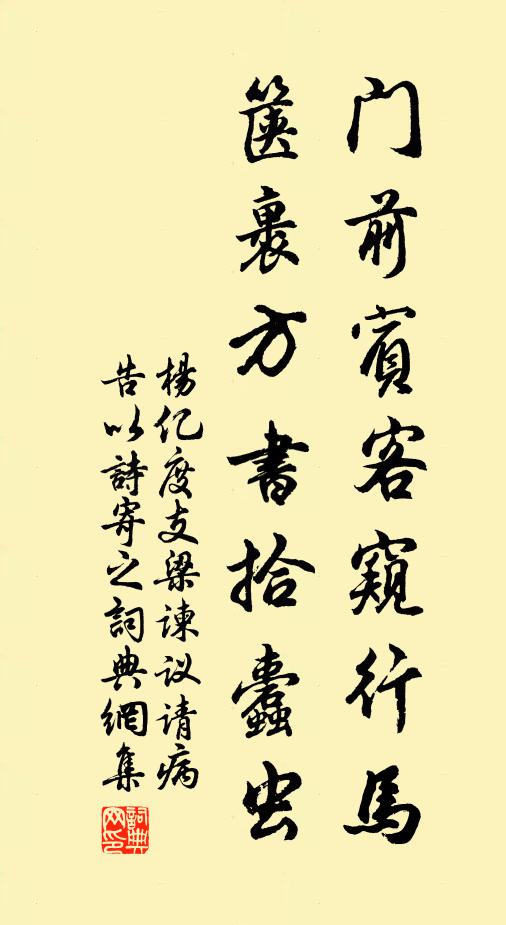 门前賓客窺行馬
篋裏方書拾蠹虫
楊亿度支梁諫议请病
告以詩寄之詞典網集
詞典网印